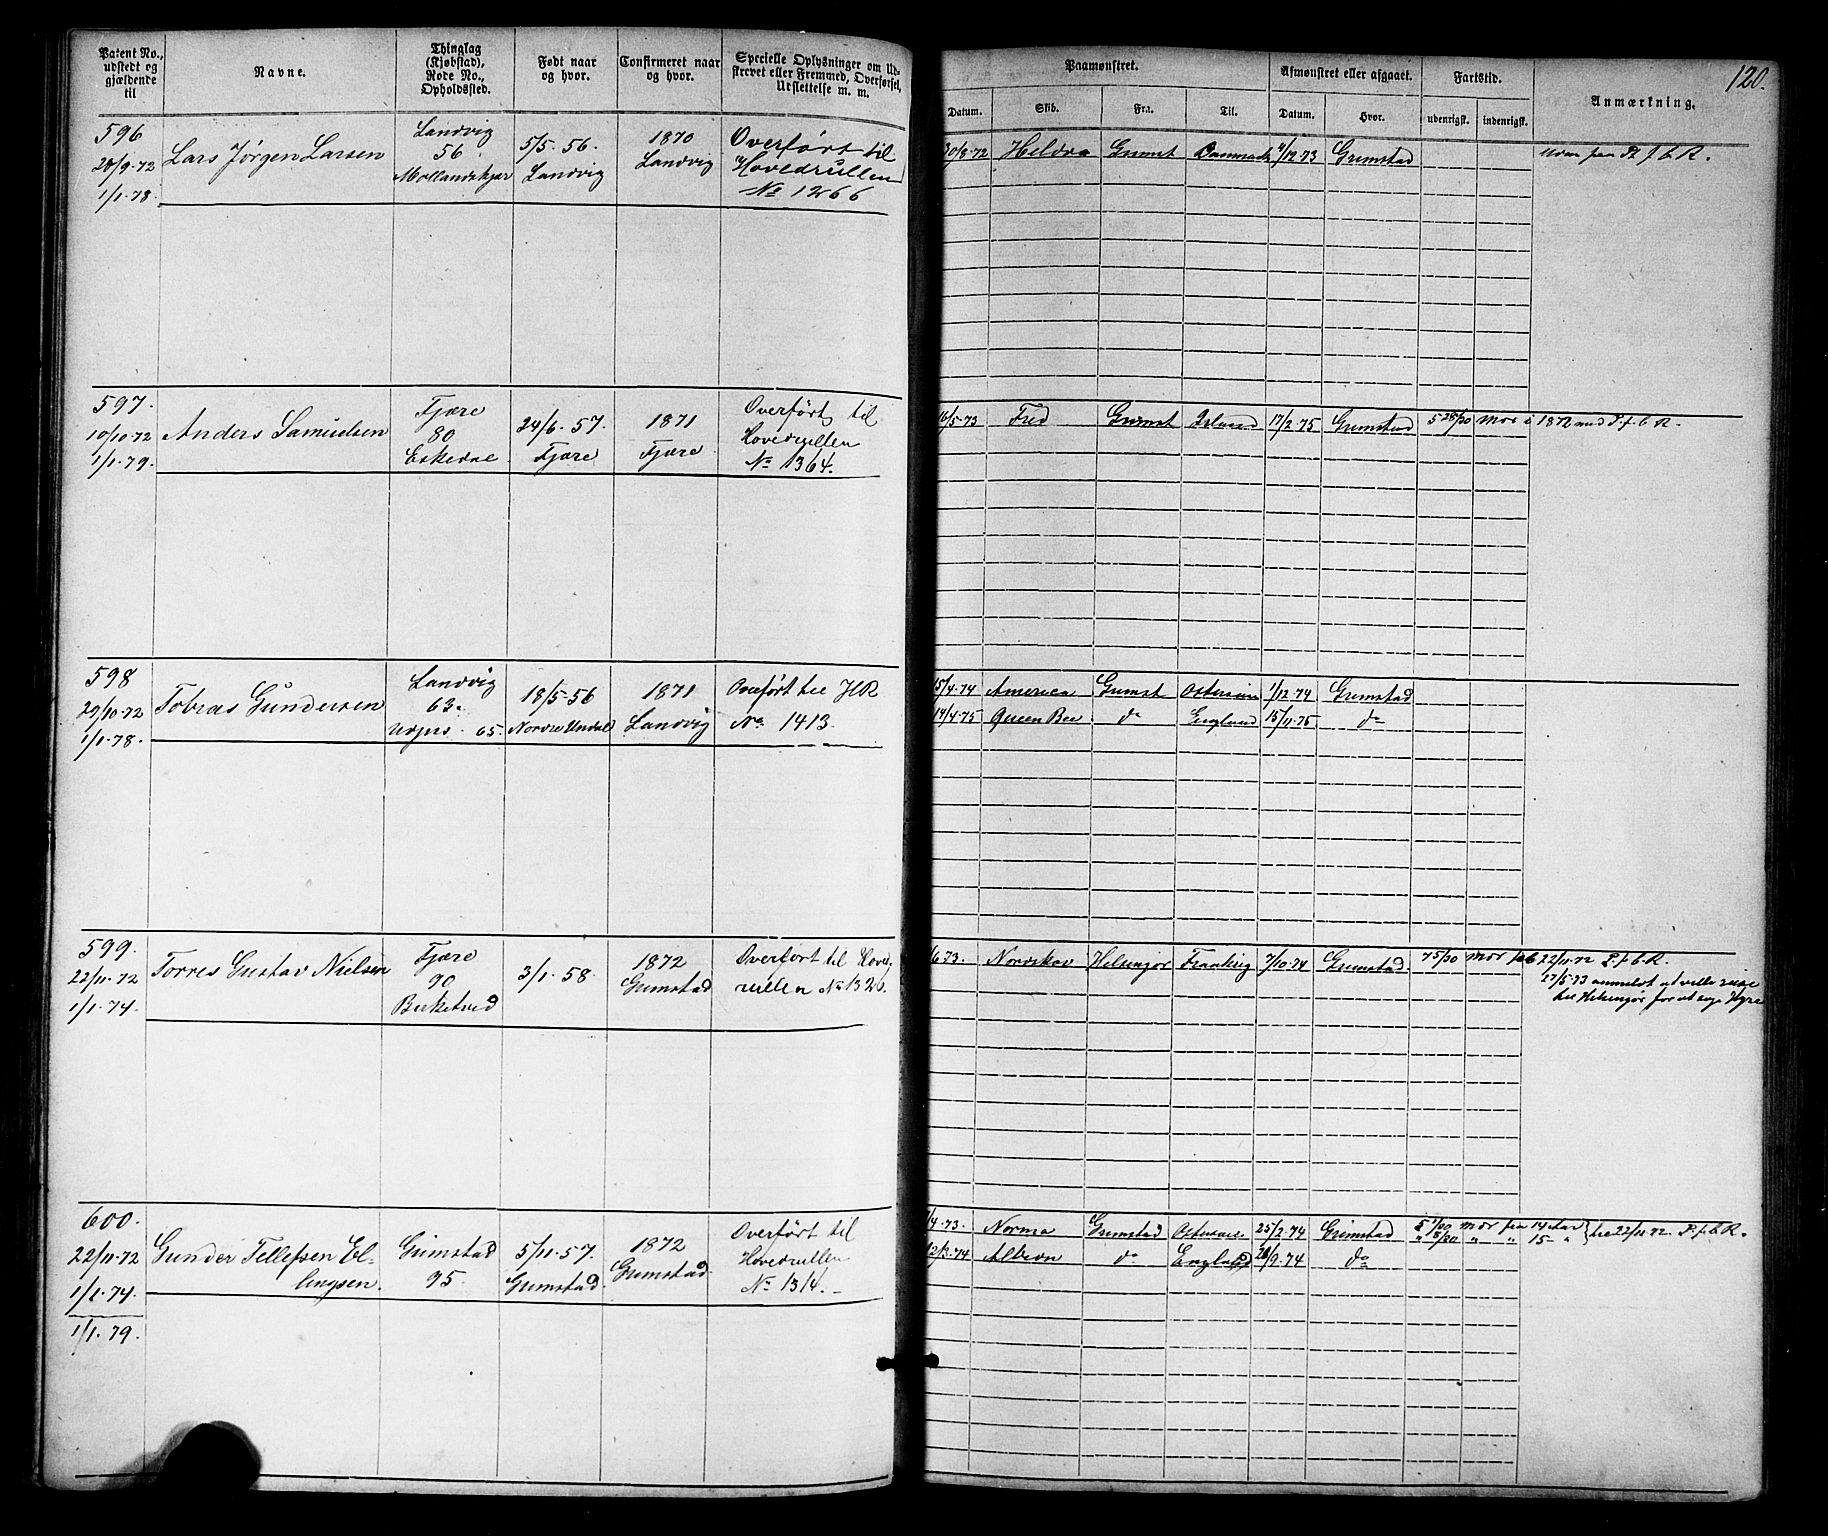 120.
Patent No., udstedt og gjældende til
Navne.
Thinglag (Kjøbstad), Rode No., Opholdssted.
Født naar og hvor.
Confirmeret naar og hvor.
Specielle Oplysninger om Udskrevet eller Fremmed, Overførsel, Udslettelse m. m.
Paamønstret.
Afmønstret eller afgaaet.
Fartstid.
Anmærkning.
Datum.
Skib.
Fra.
Til.
Datum.
Hvor.
udenrigsk.
indenrigsk.
596
28/9-72
1/1-78.
Lars Jørgen Larsen
Landvig
56.
Mollandskjær
5/5-56.
Landvig
1870
Landvig
Overført til
Hovedrullen
No 1266
30/9-72 Heldea Grimst Danmark 4/12-73 Grimstad
597.
10/10-72
1/1-79.
Anders Samuelsen
Fjære
80
Eskedal
24/6-57.
Fjære
1871
Fjære
Overført til
Hovedrullen
No 1364.
16/5-73 Fred Grimst Island 17/2-75 Grimstad 5 28/30 Mor i 1872 med P.f.C.R.
598
29/10-72
1/1-78.
Tobias Gundersen
Landvig
63.
65.
18/5-56
Nordre Undal
1871
Landvig
Overført til HR
No 1413
15/4-74 America Grimst Østersøen 1/12-74 Grimstad
14/4-75 Queen Bee do England 15/11-75. do
599.
22/11-72
1/1-74.
Torres Gustav Nielsen
Fjære
90
Birketved
3/1-58
1872
Grimstad
Overført til Hoved
rullen No 1326.
6-73. Nordskov Helsingør Frankrig 7/10-74 Grimstad
22/11-72 P.f.C.R.
27/5-73 anmeldt at ville reise
til Helsingør for at søge Hyre
600.
22/11-72
1/1-74.
1/1-79.
Gunder Tellefsen El-
lingsen.
Grimstad
95.
5/11-57.
Grimstad.
1872
Grimstad.
Overført til
Hovedrullen
No 1314.
/4-73. Norma Grimstad Østersøen 25/2-74 Grimstad
12/3-74 Albion do England 28/9-74 do
22/11-72. P.f.C.R.